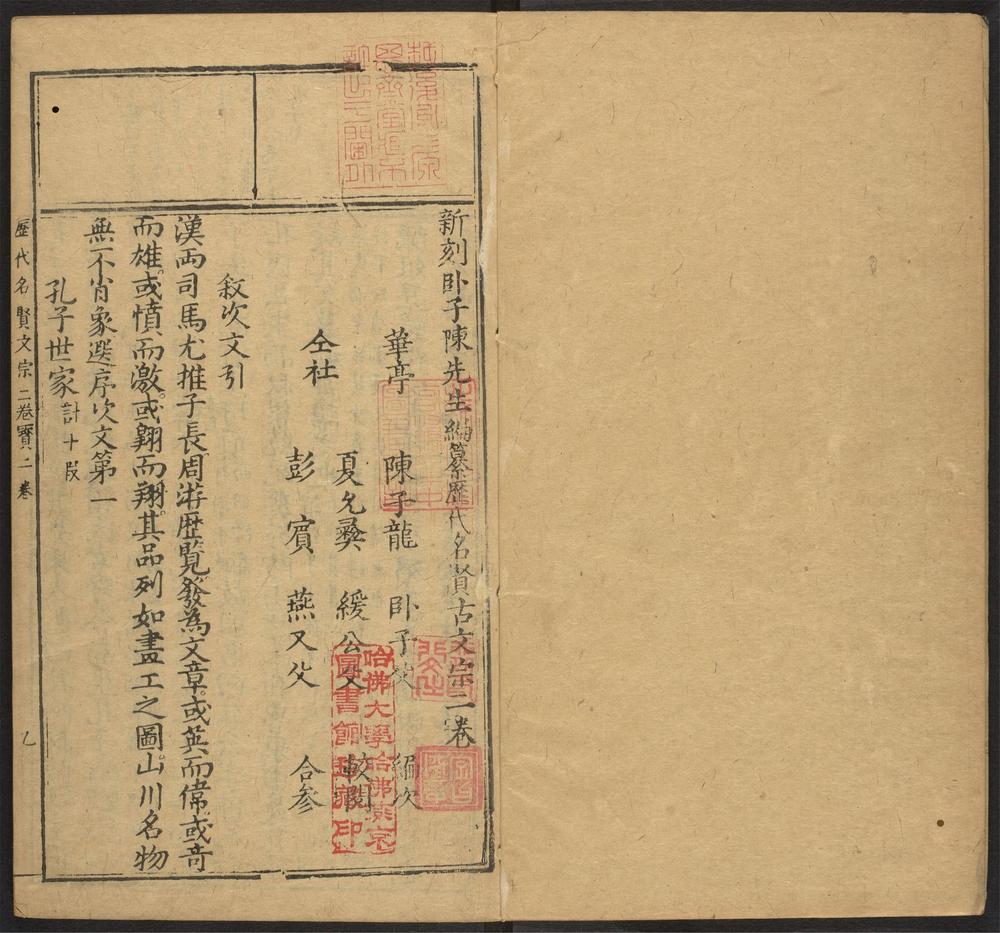 新刻卧子陳先生編纂歷代名賢古文宗二卷
華亭 陳子龍 卧子父 編次
仝社 夏允彝 緩公父 較閱
彭賓 燕又父 合參
敍次文引
漢兩司馬尤推子長周游歷覽發為文章或英而偉或奇
而雄或憤而激或翱而翔其品列如畫工之圖山川名物
無一不肖象選序次文第一
孔子世家 計十段
歷代名賢文宗二卷 寶二卷 乙
哈佛大學哈佛燕京
圖書館珍藏印